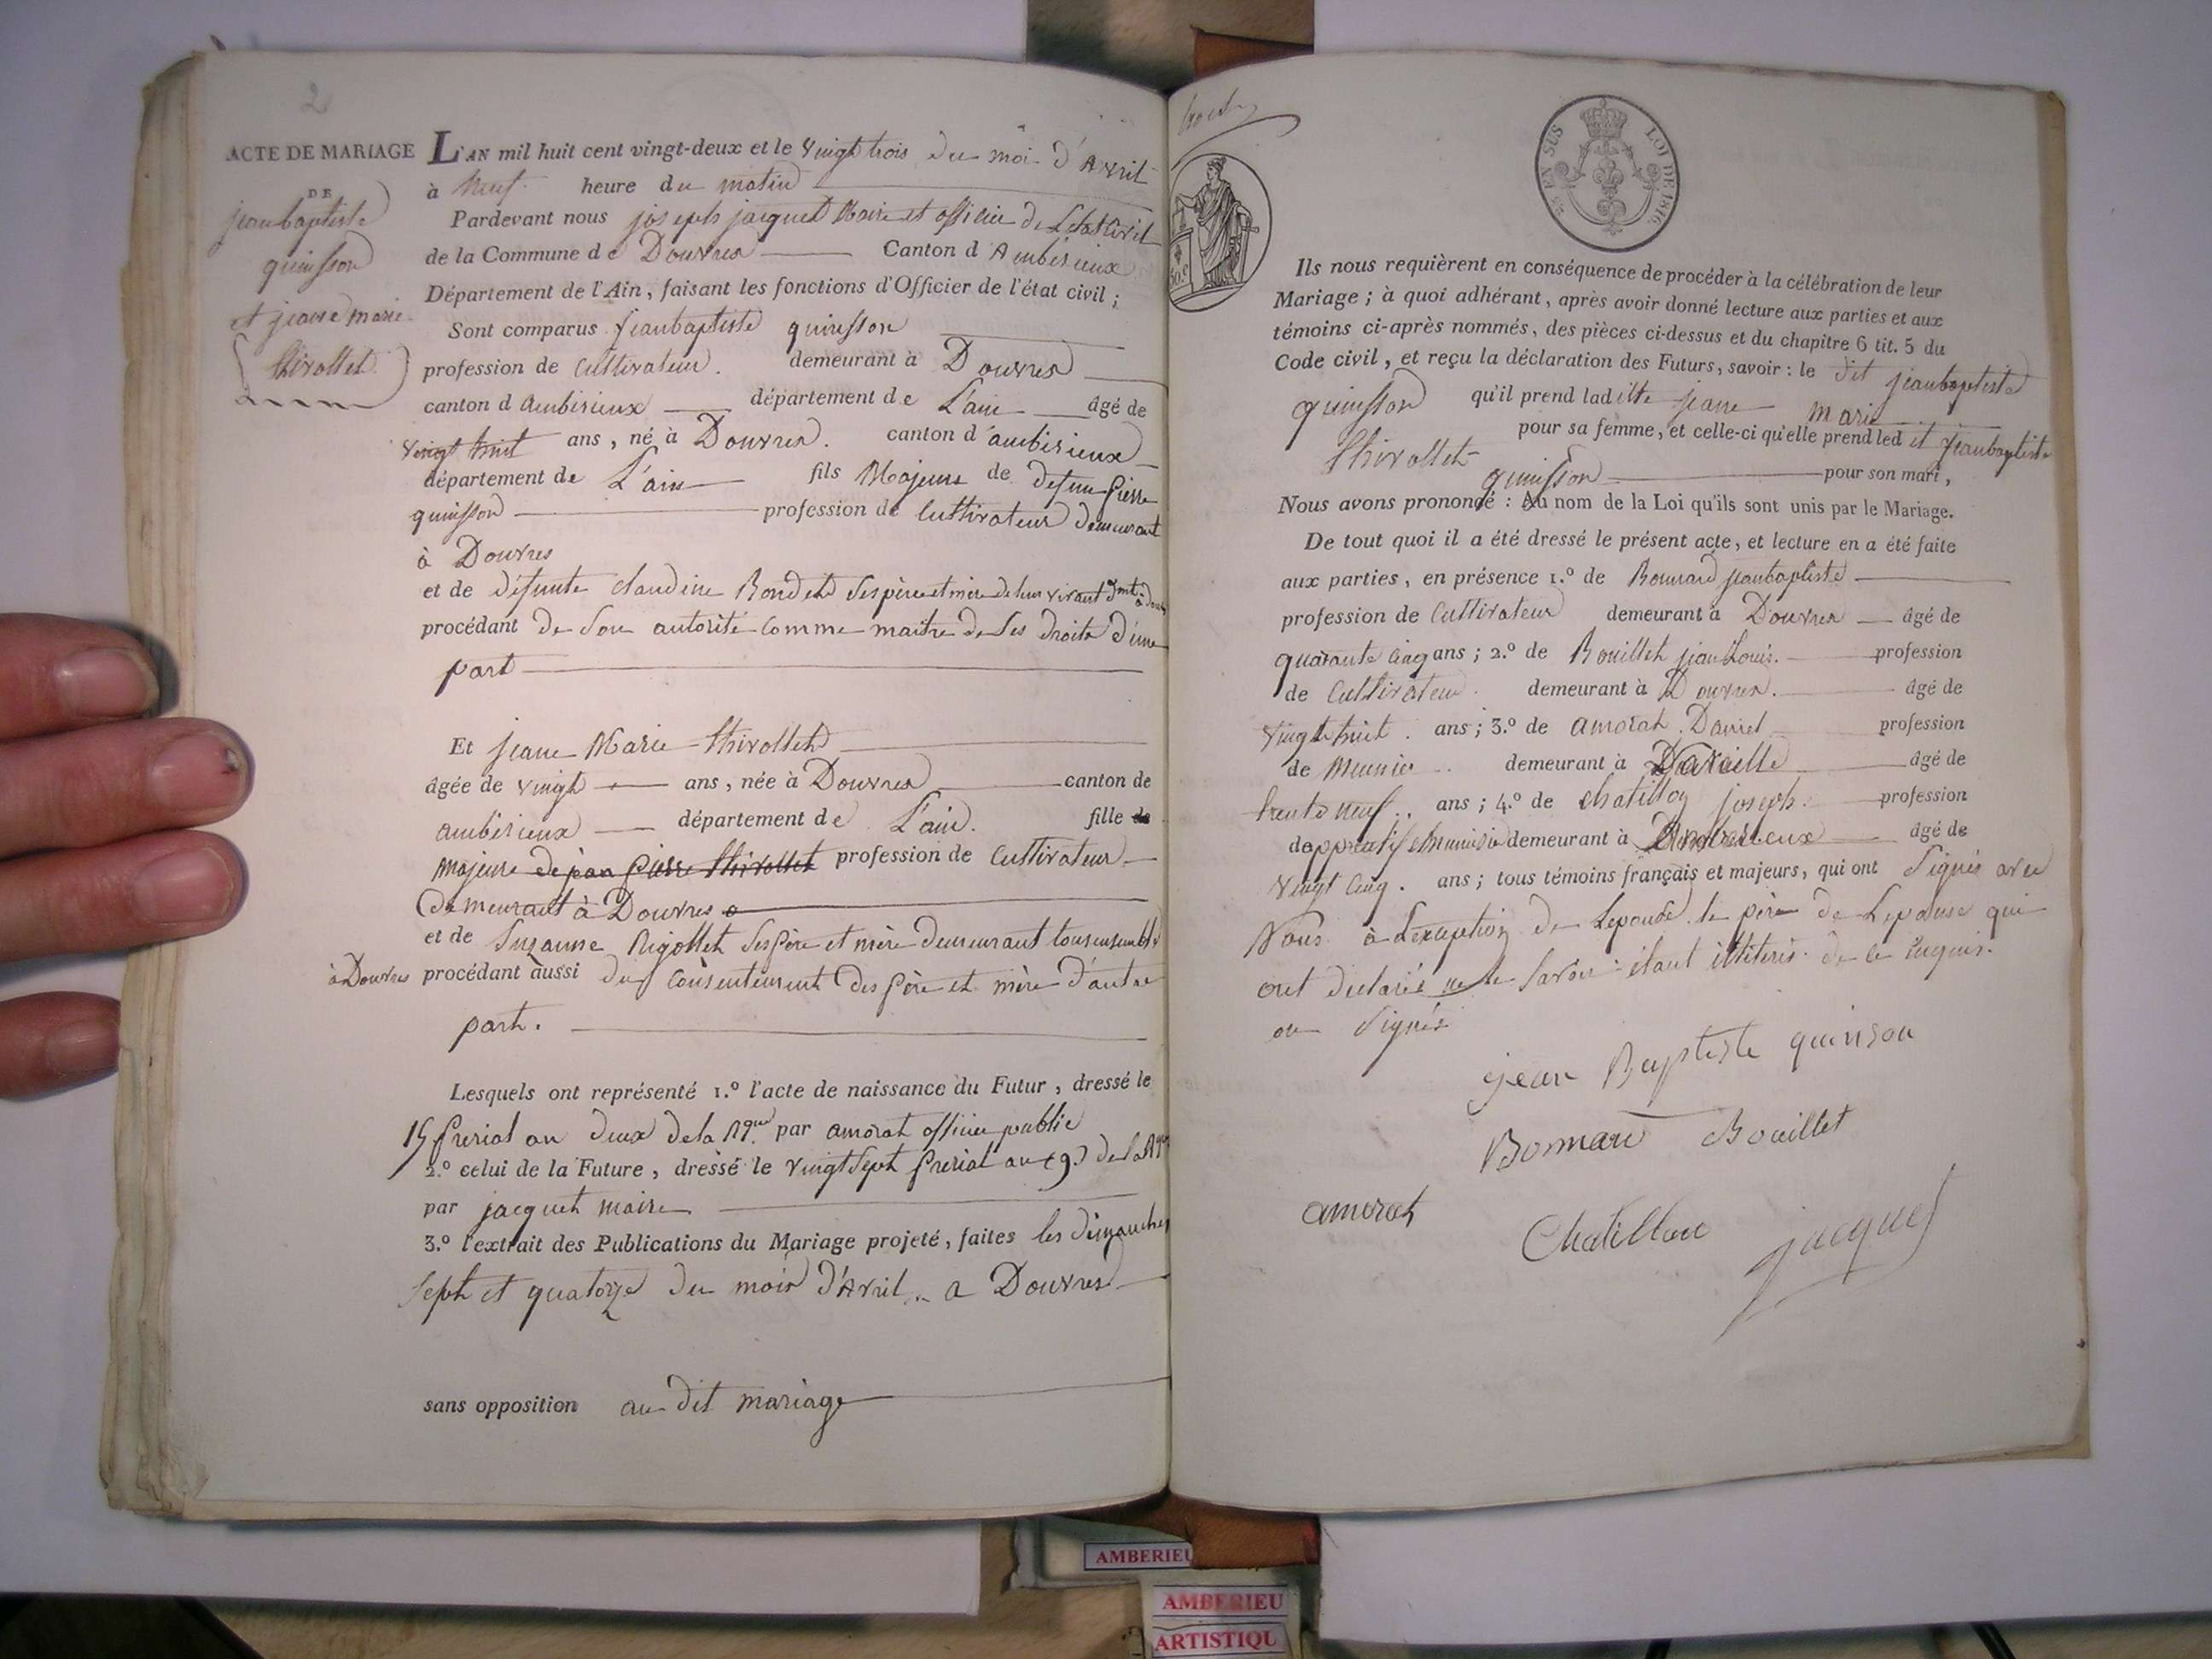 2
ACTE DE MARIAGE
DE
jeanbaptiste
quinsson
et jeane marie
thirollet
L'AN mil huit cent vingt-deux et le vingt trois du moi d'Avril
à neuf heure du matin
Pardevant nous joseph jacquet Maire et officier de Letat Civil
de la Commune de Douvres Canton d'Ambérieux
Département de l'Ain, faisant les fonctions d'Officier de l'état civil ;
Sont comparus jeanbaptiste quinsson
profession de Cultivateur. demeurant à Douvres
canton d'ambérieux département de L'ain âgé de
vingt huit ans, né à Douvres. canton d'ambérieux
département de L'ain fils Majeure de defun Pierre
quinsson profession de Cultivateur demeurant
à Douvres
et de défunte claudine Rondet Ses père et mère de leur vivant dmt à
procédant de Son autorité comme maitre de Ses droits d'une
part
Et jeane Marie thirollet
âgée de vingt ans, née à Douvres canton de
ambérieux département de L'ain. fille de
majeure de jean Pierre thirollet profession de Cultivateur
demeurant à Douvres
et de Suzanne Rigollet Ses Père et mère demeurant tous ensemble
à Douvres procédant aussi du Consentement des Père et mère d'autre
part.
Lesquels ont représenté 1.º l'acte de naissance du Futur, dressé le
15 Prerial an deux de la Rque par amorat officier public
2.º celui de la Future, dressé le vingt Sept Prerial an (9) de la Rque
par jacquet maire
3.º l'extrait des Publications du Mariage projeté, faites les dimanches
Sept et quatorze du mois d'Avril a Douvres
sans opposition au dit mariage
50.c
EN SUS
LOI DE 1816.
Ils nous requièrent en conséquence de procéder à la célébration de leur
Mariage ; à quoi adhérant, après avoir donné lecture aux parties et aux
témoins ci-après nommés, des pièces ci-dessus et du chapitre 6 tit. 5 du
Code civil, et reçu la déclaration des Futurs, savoir : le dit jeanbaptiste
quinsson qu'il prend laditte jeane marie
thirollet pour sa femme, et celle-ci qu'elle prend ledit jeanbaptiste
quinsson pour son mari,
Nous avons prononcé : Au nom de la Loi qu'ils sont unis par le Mariage.
De tout quoi il a été dressé le présent acte, et lecture en a été faite
aux parties, en présence 1.º de Bonnard jeanbaptiste
profession de Cultivateur demeurant à Douvres âgé de
quarante cinq ans ; 2.º de Bouillet jean Louis. profession
de Cultivateur demeurant à Douvres. âgé de
vingt huit. ans ; 3.º de amorat Daniel profession
de Munier demeurant à âgé de
trente neuf.. ans ; 4.º de chatillon joseph. profession
de demeurant à Amberieux âgé de
vingt Cinq. ans ; tous témoins français et majeurs, qui ont Signés avec
Nous à L'exception de Lepouse le père de Lepouse qui
ont declarés ne le Savoir étant illiterés de ce Enquis.
on Signés
jean Baptiste quinson
Bonnard Bouillet
amorat
Chatillon jacquet
AMBERIEU
AMBERIEU
ARTISTIQU